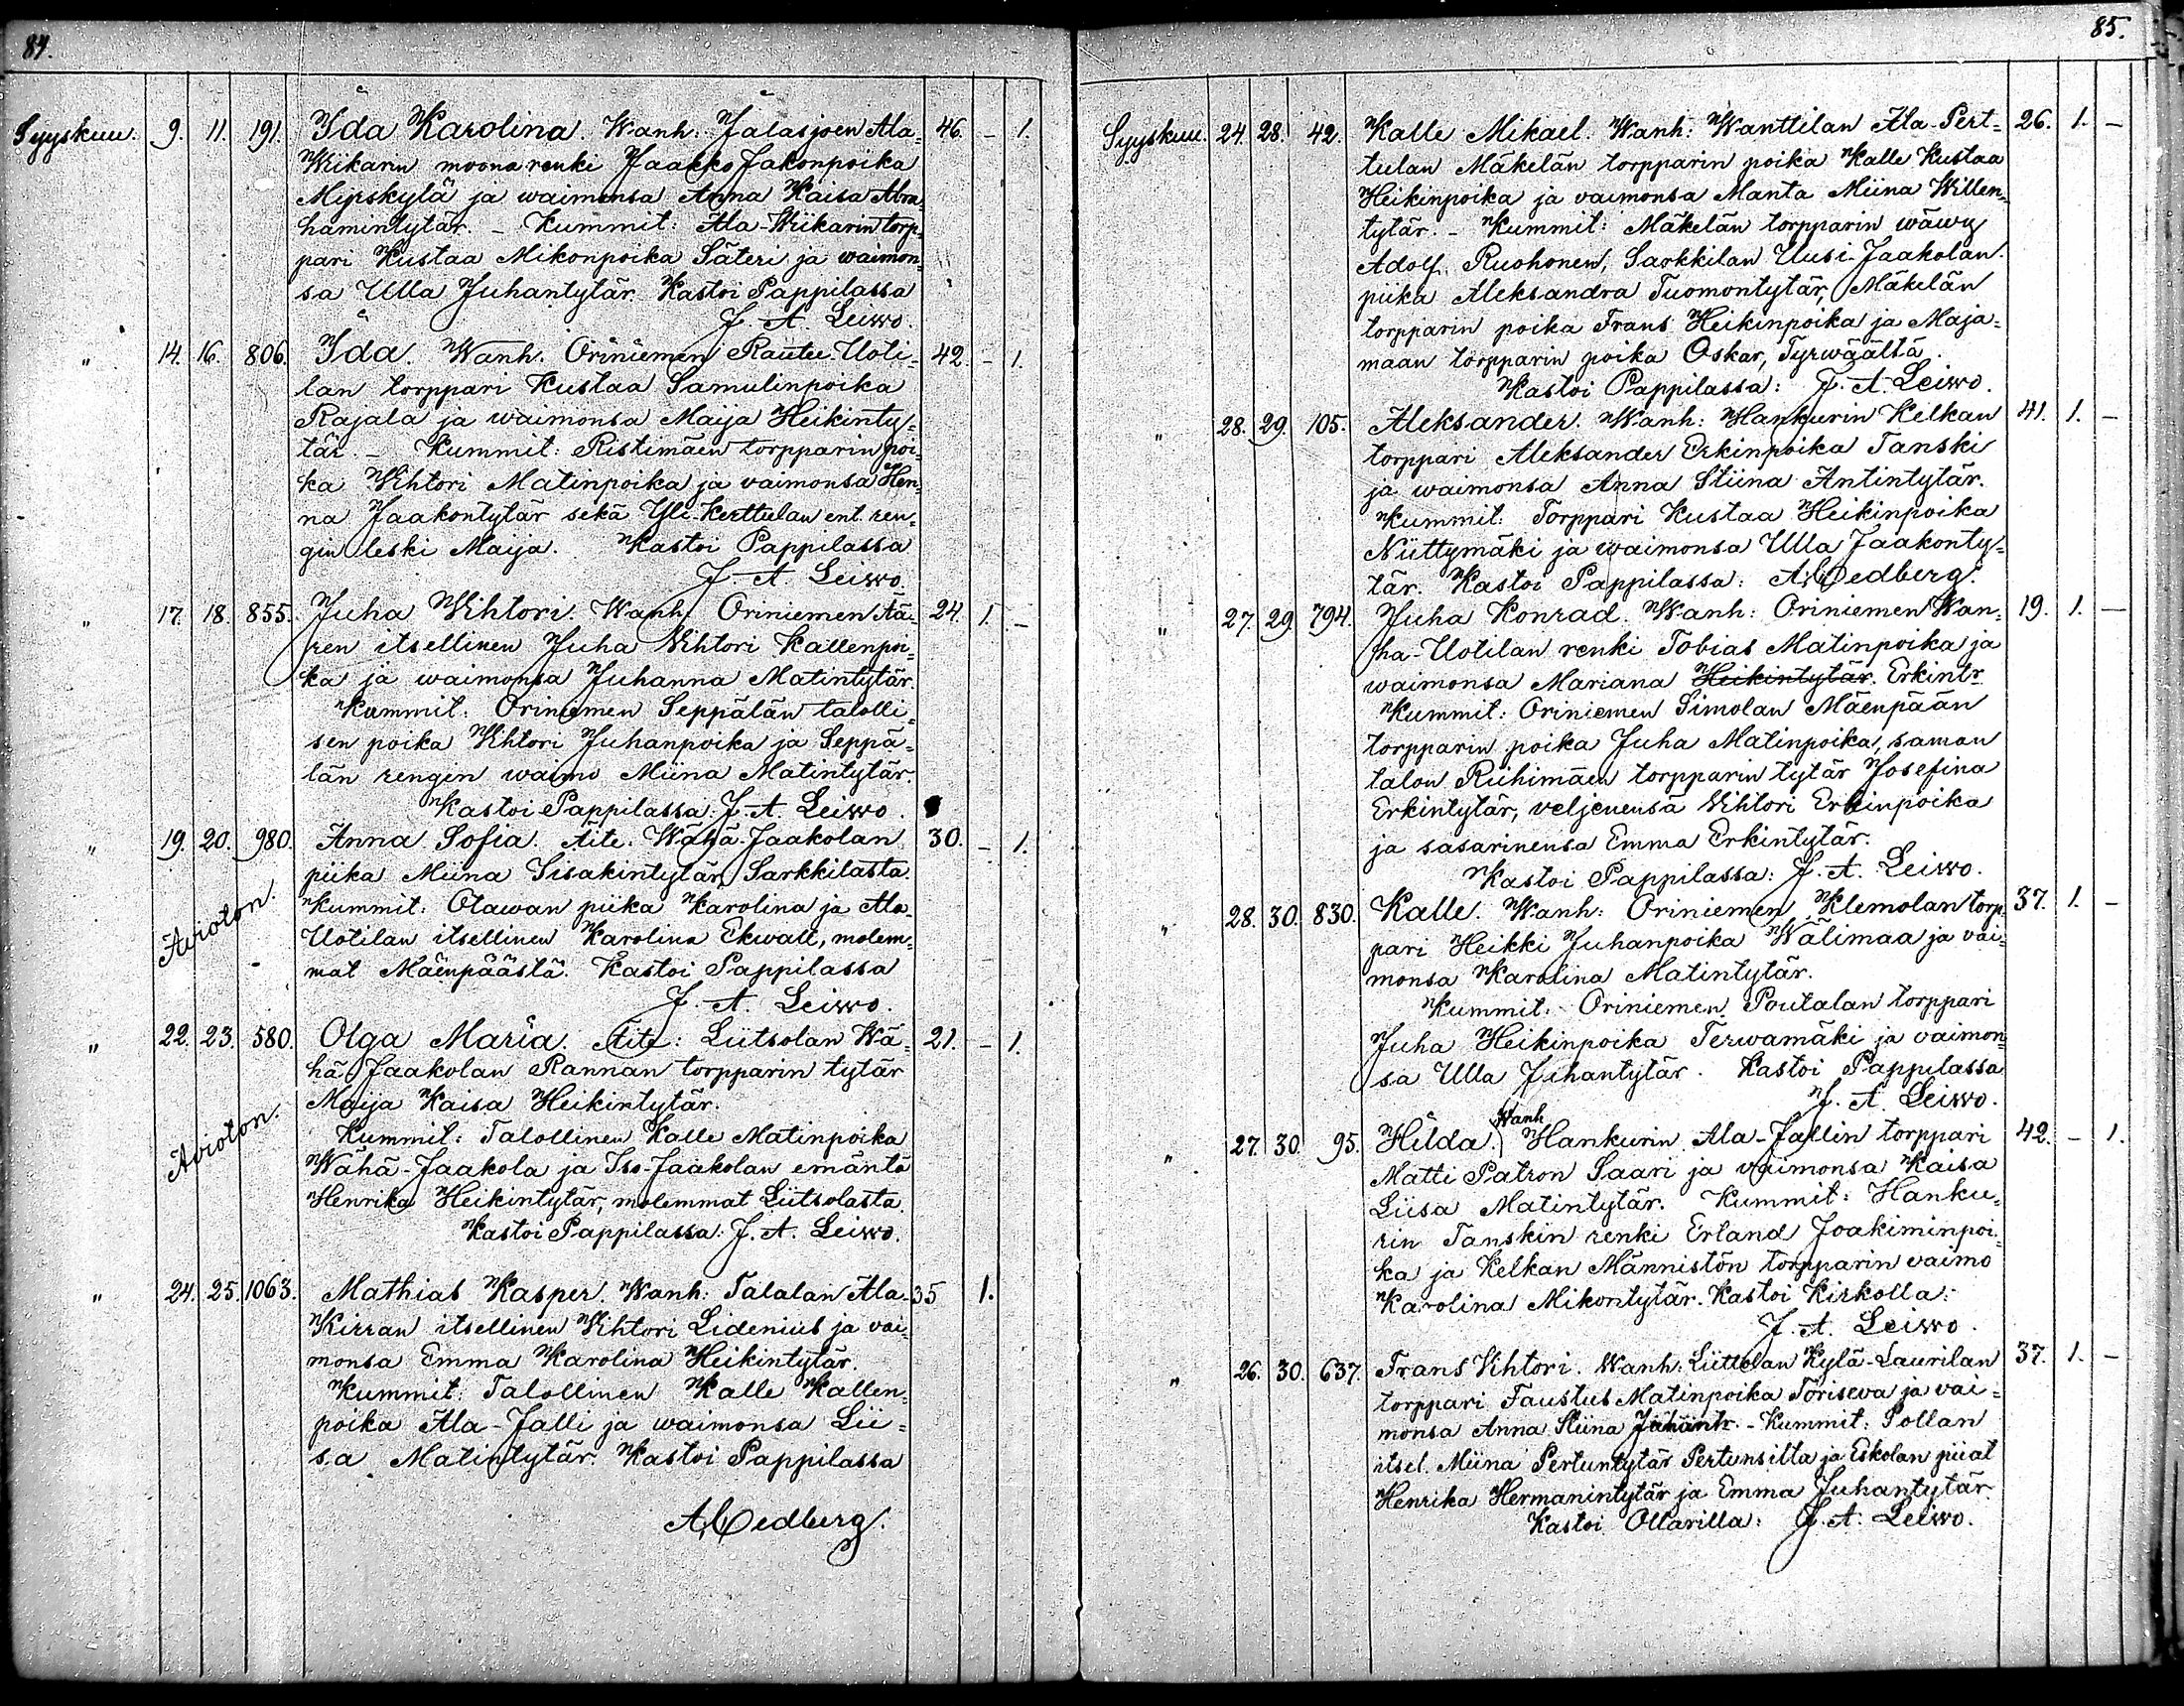 84.
Syyskuu. 9. 11. 191. Ida Karolina. Wanh: Jalasjoen Ala- 46. – 1.
Wiikarin moona renki Jaakko Jakonpoika
Myrskylä ja waimonsa Anna Kaisa Abra=
hamintytär. – Kummit: Ala-Wiikarin torp=
pari Kustaa Mikonpoika Säteri ja waimon=
sa Ulla Juhantytär. Kastoi Pappilassa
J. A. Leiwo.
" 14. 16. 806. Ida. Wanh. Oriniemen Rautee-Uoti= 42. – 1.
lan torppari Kustaa Samulinpoika
Rajala ja waimonsa Maija Heikinty=
tär. – Kummit: Ristimäen torpparin poi=
ka Wihtori Matinpoika ja vaimonsa Hen=
na Jaakontytär sekä Yli-Kerttulan ent. ren=
gin leski Maija. Kastoi Pappilassa
J. A. Leiwo.
" 17. 18. 855. Juha Wihtori. Wanh: Oriniemen Ää= 24. 1. –
ren itsellinen Juha Wihtori Kallenpoi=
ka ja waimonsa Juhanna Matintytär.
Kummit: Oriniemen Seppälän talolli=
sen poika Wihtori Juhanpoika ja Seppä=
län rengin waimo Miina Matintytär.
Kastoi Pappilassa: J. A. Leiwo.
" 19. 20. 980. Anna Sofia. Äite: Wähä-Jaakolan 30. – 1.
piika Miina Iisakintytär, Sarkkilasta.
Avioton. Kummit: Otawan piika Karolina ja Ala-
Uotilan itsellinen Karolina Ekwall, molem=
mat Mäenpäästä. Kastoi Pappilassa
J. A. Leiwo.
" 22. 23. 580. Olga Maria. Äite: Liitsolan Wä= 21. – 1.
hä Jaakolan Rannan torpparin tytär
Maija Kaisa Heikintytär.
Avioton. Kummit: Talollinen Kalle Matinpoika
Wähä-Jaakola ja Iso-Jaakolan emäntä
Henrika Heikintytär, molemmat Liitsolasta.
Kastoi Pappilassa: J. A. Leiwo.
" 24. 25. 1063. Mathias Kasper. Wanh: Talalan Ala- 35 1.
Kirran itsellinen Wihtori Lidenius ja vai=
monsa Emma Karolina Heikintytär.
Kummit: Talollinen Kalle Kallen=
poika Ala-Jalli ja waimonsa Lii=
sa Matintytär. Kastoi Pappilassa
A. Cedberg.
85.
Syyskuu. 24. 28. 42. Kalle Mikael. Wanh: Wanttilan Ala-Pert= 26. 1. –
tulan Mäkelän torpparin poika Kalle Kustaa
Heikinpoika ja vaimonsa Manta Miina Willen=
tytär. – Kummit: Mäkelän torpparin wäwy
Adolf Ruohonen, Sarkkilan Uusi-Jaakolan
piika Aleksandra Tuomontytär, Mäkelän
torpparin poika Frans Heikinpoika ja Maja=
maan torpparin poika Oskar, Tyrwäältä.
Kastoi Pappilassa: J. A. Leiwo.
" 28. 29. 105. Aleksander. Wanh: Hankurin Kelkan 41. 1. –
torppari Aleksander Erkinpoika Tanski
ja waimonsa Anna Stiina Antintytär.
Kummit: Torppari Kustaa Heikinpoika
Niittymäki ja waimonsa Ulla Jaakonty=
tär. Kastoi Pappilassa: A. Cedberg.
" 27. 29. 794. Juha Konrad. Wanh: Oriniemen Wan= 19. 1. –
ha-Uotilan renki Tobias Matinpoika ja
waimonsa Mariana Heikintytär. Erkintr
Kummit: Oriniemen Simolan Mäenpään
torpparin poika Juha Matinpoika, saman
talon Riihimäen torpparin tytär Josefina
Erkintytär, veljenensä Wihtori Erkinpoika
ja sasarinensa Emma Erkintytär.
Kastoi Pappilassa: J. A. Leiwo.
" 28. 30. 830. Kalle. Wanh: Oriniemen Klemolan torp= 37. 1. –
pari Heikki Juhanpoika Wälimaa ja vai=
monsa Karolina Matintytär.
Kummit: Oriniemen Poutalan torppari
Juha Heikinpoika Terwamäki ja vaimon=
sa Ulla Juhantytär. Kastoi Pappilassa
J. A. Leiwo.
" 27. 30. 95. Hilda. Wanh Hankurin Ala-Jallin torppari 42. – 1.
Matti Patron Saari ja vaimonsa Kaisa
Liisa Matintytär. Kummit: Hanku=
rin Tanskin renki Erland Joakiminpoi=
ka ja Kelkan Männistön torpparin vaimo
Karolina Mikontytär. Kastoi Kirkolla:
J. A. Leiwo.
" 26. 30. 637. Frans Wihtori. Wanh: Liittolan Kylä-Laurilan 37. 1. –
torppari Faustus Matinpoika Töriseva ja vai=
monsa Anna Stiina Juhantr. – Kummit: Pollan
itsel. Miina Pertuntytär Pertunsilta ja Eskolan piiat
Henrika Hermanintytär ja Emma Juhantytär
Kastoi Ollarilla: J. A. Leiwo.